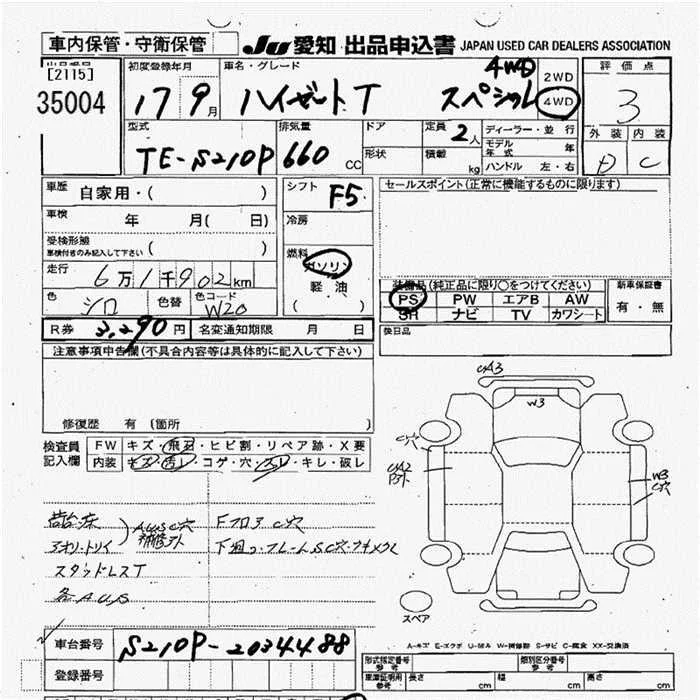 車内保管・守衛保管
JU 愛知 出品申込書 JAPAN USED CAR DEALERS ASSOCIATION
出品番号
[2115]
35004
初度登録年月
17 9月
車名・グレード
ハイゼットT スペシャル 4WD
2WD
4WD
評価点
3
外装 内装
D C
型式
TE-S210P
排気量
660 CC
ドア
形状
定員
2人
積載
kg
ディーラー・並行
モデル年式 年
ハンドル 左・右
車歴
自家用・( )
車検
年 月( 日)
受検形態
車検付きのみ記入して下さい ( )
走行
6万1千902km
色
シロ
色替
色コード
W20
シフト
F5
冷房
燃料
ガソリン
軽油
セールスポイント(正常に機能するものに限ります)
装備品(純正品に限り○をつけてください)
PS PW エアB AW
SR ナビ TV カワシート
新車保証書
有・無
後日品
R券 3,290円 名変通知期限 月 日
注意事項申告欄(不具合内容等は具体的に記入して下さい)
修復歴 有 (箇所 )
検査員
記入欄
FW キズ・飛石・ヒビ割・リペア跡・X要
内装 キズ・汚レ・コゲ・穴・スレ・キレ・破レ
荷台床
アオリ・トリイ
AUSC穴
補修外
スタッドレスT
各AUS
Fフロア C穴
下廻り・フレームSC穴・
A3
W3
C穴
A2
W3
C穴
スペア
A-キズ E-エクボ U-凹ミ W-補修跡 S-サビ C-腐食 XX-交換済
車台番号
S210P-2034488
登録番号
型式指定番号
参考
類別区分番号
参考
車庫証明用
参考
長さ cm 幅 cm 高さ cm